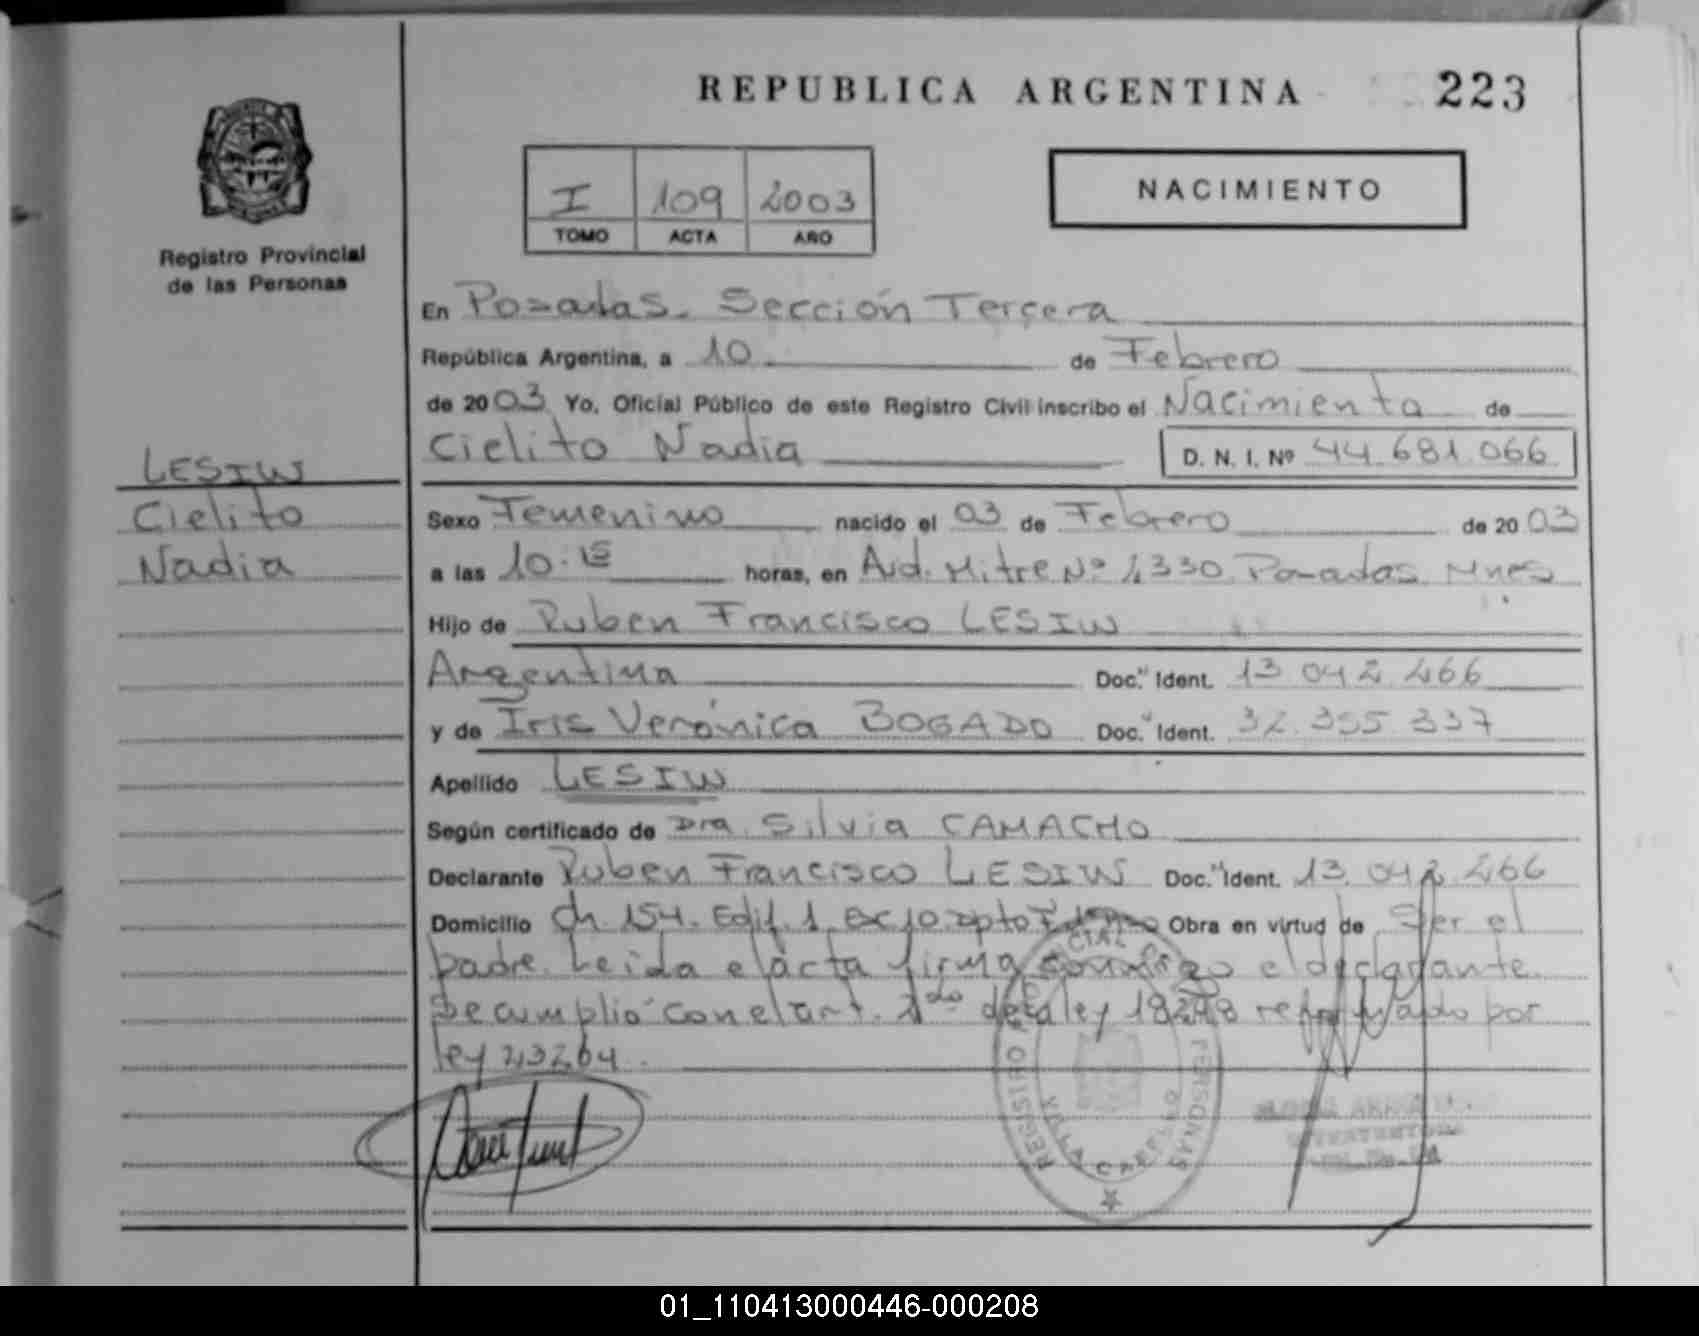 REPUBLICA ARGENTINA 223
I 109 2003
TOMO ACTA AÑO
NACIMIENTO
Registro Provincial
de las Personas
En Posadas. Sección Tercera
República Argentina, a 10 de Febrero
de 2003 Yo, Oficial Público de este Registro Civil inscribo el Nacimiento de
Cielito Nadia D. N. I. Nº 44.681.066
LESIW
Cielito
Nadia
Sexo Femenino nacido el 03 de Febrero de 2003
a las 10.15 horas, en Avd. Mitre Nº 2330. Posadas. Mnes
Hijo de Ruben Francisco LESIW
Argentina Doc. Ident. 13.042.266
y de Iris Verónica BOGADO Doc. Ident. 32.355.337
Apellido LESIW
Según certificado de Dra. Silvia CAMACHO
Declarante Ruben Francisco LESIW Doc. Ident. 13.042.266
Domicilio Ch. 154. Edif. 1. esc 10. dpto Obra en virtud de Ser el
padre. Leida el acta firma conmigo el declarante.
Se cumplió con el art. 2do de la ley 18248 reformado por
ley 23264.
REGISTRO PROVINCIAL DE LAS PERSONAS
VILLA CABELLO
01_110413000446-000208